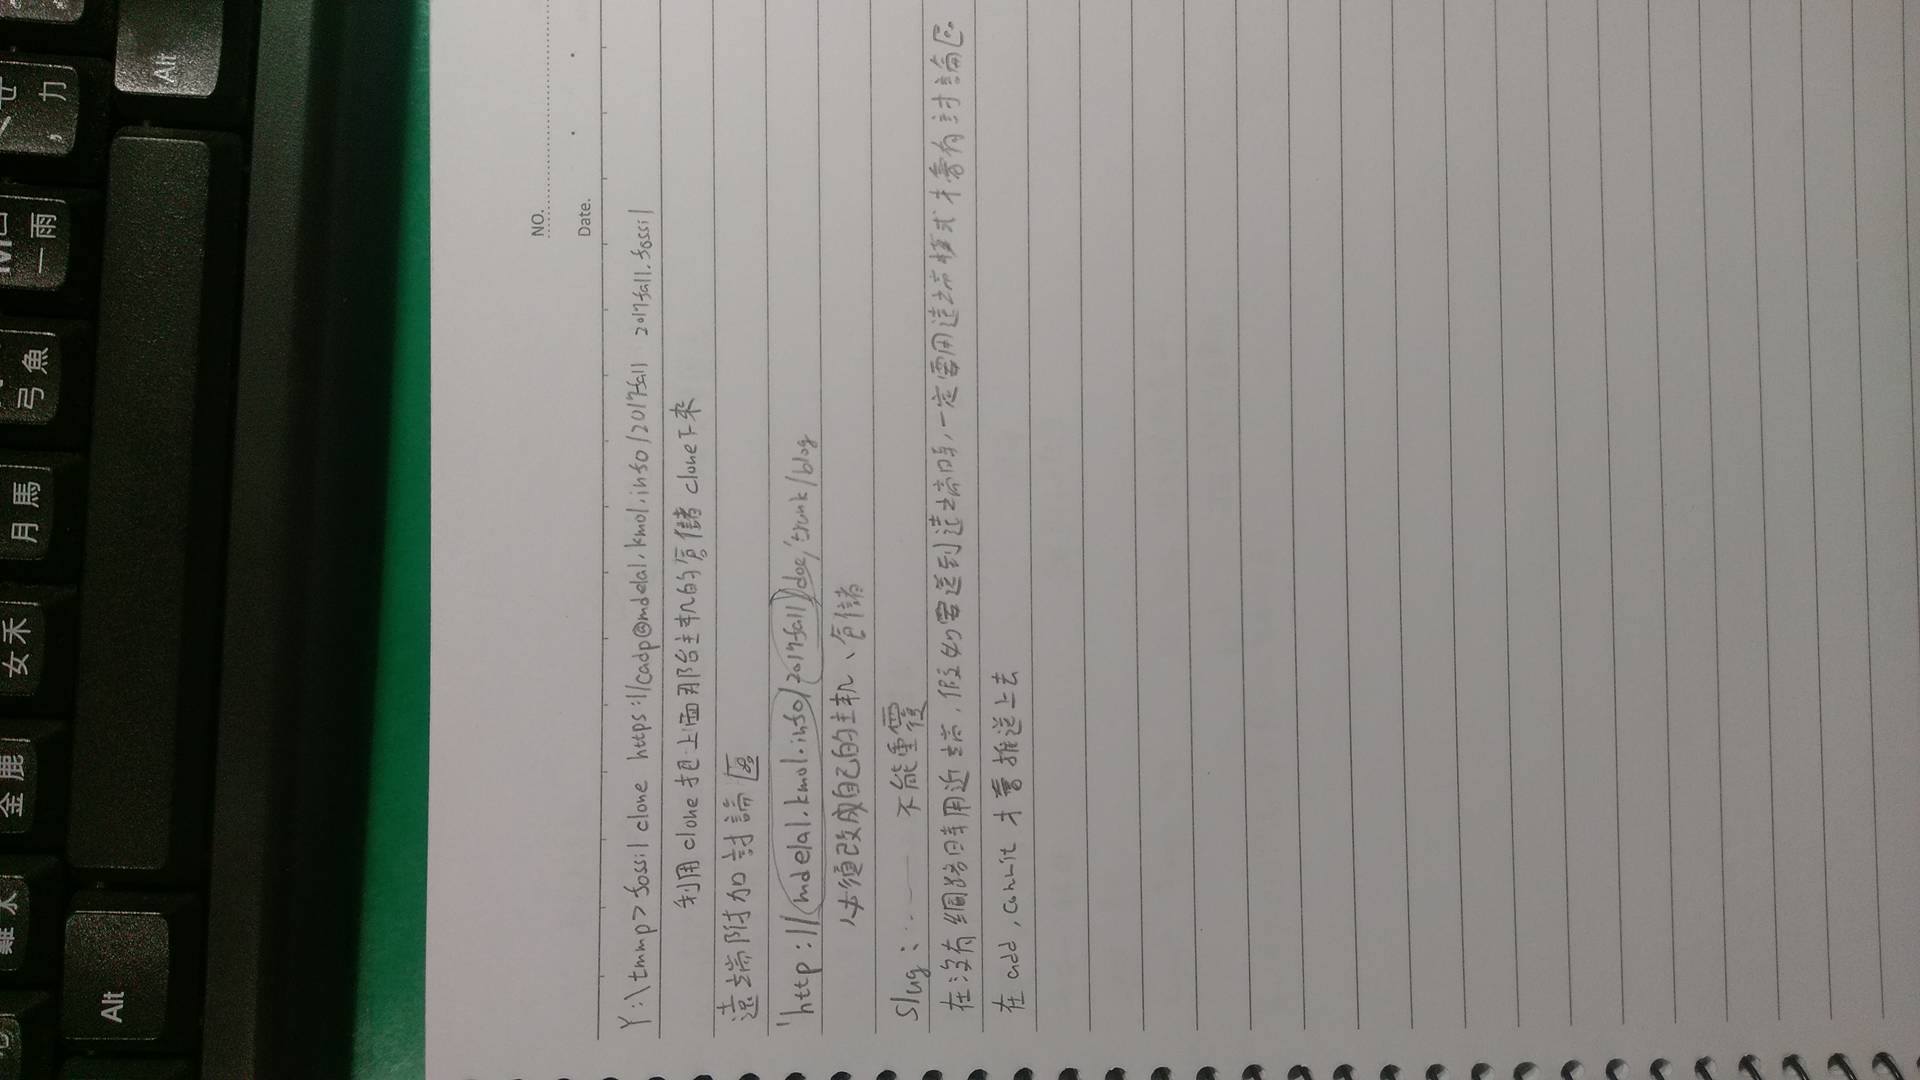 NO.
Date.
Y:\tmmp>fossil clone https://cadp@mdela1.kmol.info/2017fall 2017fall.fossil
利用 clone 把上面那台主机的倉儲 clone下來
遠端附加討論區
'http://mdela1.kmol.info/2017fall/doc/trunk/blog
必須改成自己的主机、倉儲
Slug: 不能重複
在沒有網路時用近端,假如要送到遠端時,一定要用遠端模式才會有討論区.
在 add, commit 才會推送上去
Alt
難 木
金 鹿
女 禾
月 馬
弓 魚
一 雨
M
, 力
Alt